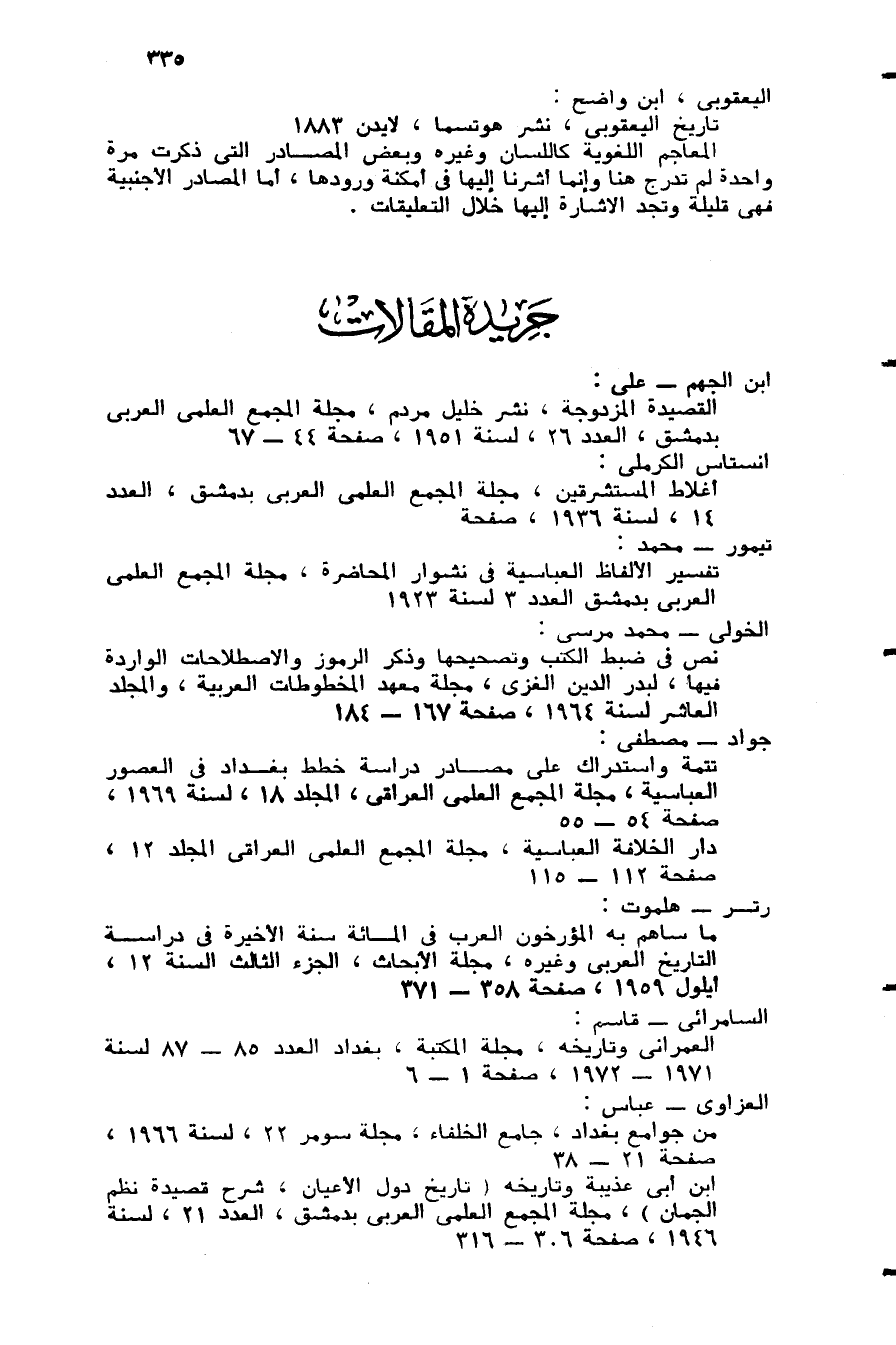 ٣٣٥
اليعقوبى ، ابن واضح :
تاريخ اليعقوبى ، نشر هوتسما ، لايدن ١٨٨٣
المعاجم اللغوية كاللسان وغيره وبعض المصادر التى ذكرت مرة
واحدة لم تدرج هنا وإنما أشرنا إليها فى أمكنة ورودها ، أما المصادر الأجنبية
فهى قليلة وتجد الاشارة إليها خلال التعليقات .
جَرِيدة المقَالات
ابن الجهم — على :
القصيدة المزدوجة ، نشر خليل مردم ، مجلة المجمع العلمى العربى
بدمشق ، العدد ٢٦ ، لسنة ١٩٥١ ، صفحة ٤٤ — ٦٧
انستاس الكرملى :
أغلاط المستشرقين ، مجلة المجمع العلمى العربى بدمشق ، العدد
١٤ ، لسنة ١٩٣٦ ، صفحة
تيمور — محمد :
تفسير الألفاظ العباسية فى نشوار المحاضرة ، مجلة المجمع العلمى
العربى بدمشق العدد ٣ لسنة ١٩٢٣
الخولى — محمد مرسى :
نص فى ضبط الكتب وتصحيحها وذكر الرموز والاصطلاحات الواردة
فيها ، لبدر الدين الغزى ، مجلة معهد المخطوطات العربية ، والمجلد
العاشر لسنة ١٩٦٤ ، صفحة ١٦٧ — ١٨٤
جواد — مصطفى :
تتمة واستدراك على مصادر دراسة خطط بغداد فى العصور
العباسية ، مجلة المجمع العلمى العراقى ، المجلد ١٨ ، لسنة ١٩٦٩ ،
صفحة ٥٤ — ٥٥
دار الخلافة العباسية ، مجلة المجمع العلمى العراقى المجلد ١٢ ،
صفحة ١١٢ — ١١٥
رتر — هلموت :
ما ساهم به المؤرخون العرب فى المائة سنة الأخيرة فى دراسة
التاريخ العربى وغيره ، مجلة الأبحاث ، الجزء الثالث السنة ١٢ ،
أيلول ١٩٥٩ ، صفحة ٣٥٨ — ٣٧١
السامرائى — قاسم :
العمرانى وتاريخه ، مجلة المكتبة ، بغداد العدد ٨٥ — ٨٧ لسنة
١٩٧١ — ١٩٧٢ ، صفحة ١ — ٦
العزاوى — عباس :
من جوامع بغداد ، جامع الخلفاء ، مجلة سومر ٢٢ ، لسنة ١٩٦٦ ،
صفحة ٢١ — ٣٨
ابن أبى عذيبة وتاريخه ( تاريخ دول الأعيان ، شرح قصيدة نظم
الجمان ) ، مجلة المجمع العلمى العربى بدمشق ، العدد ٢١ ، لسنة
١٩٤٦ ، صفحة ٣٠٦ — ٣١٦